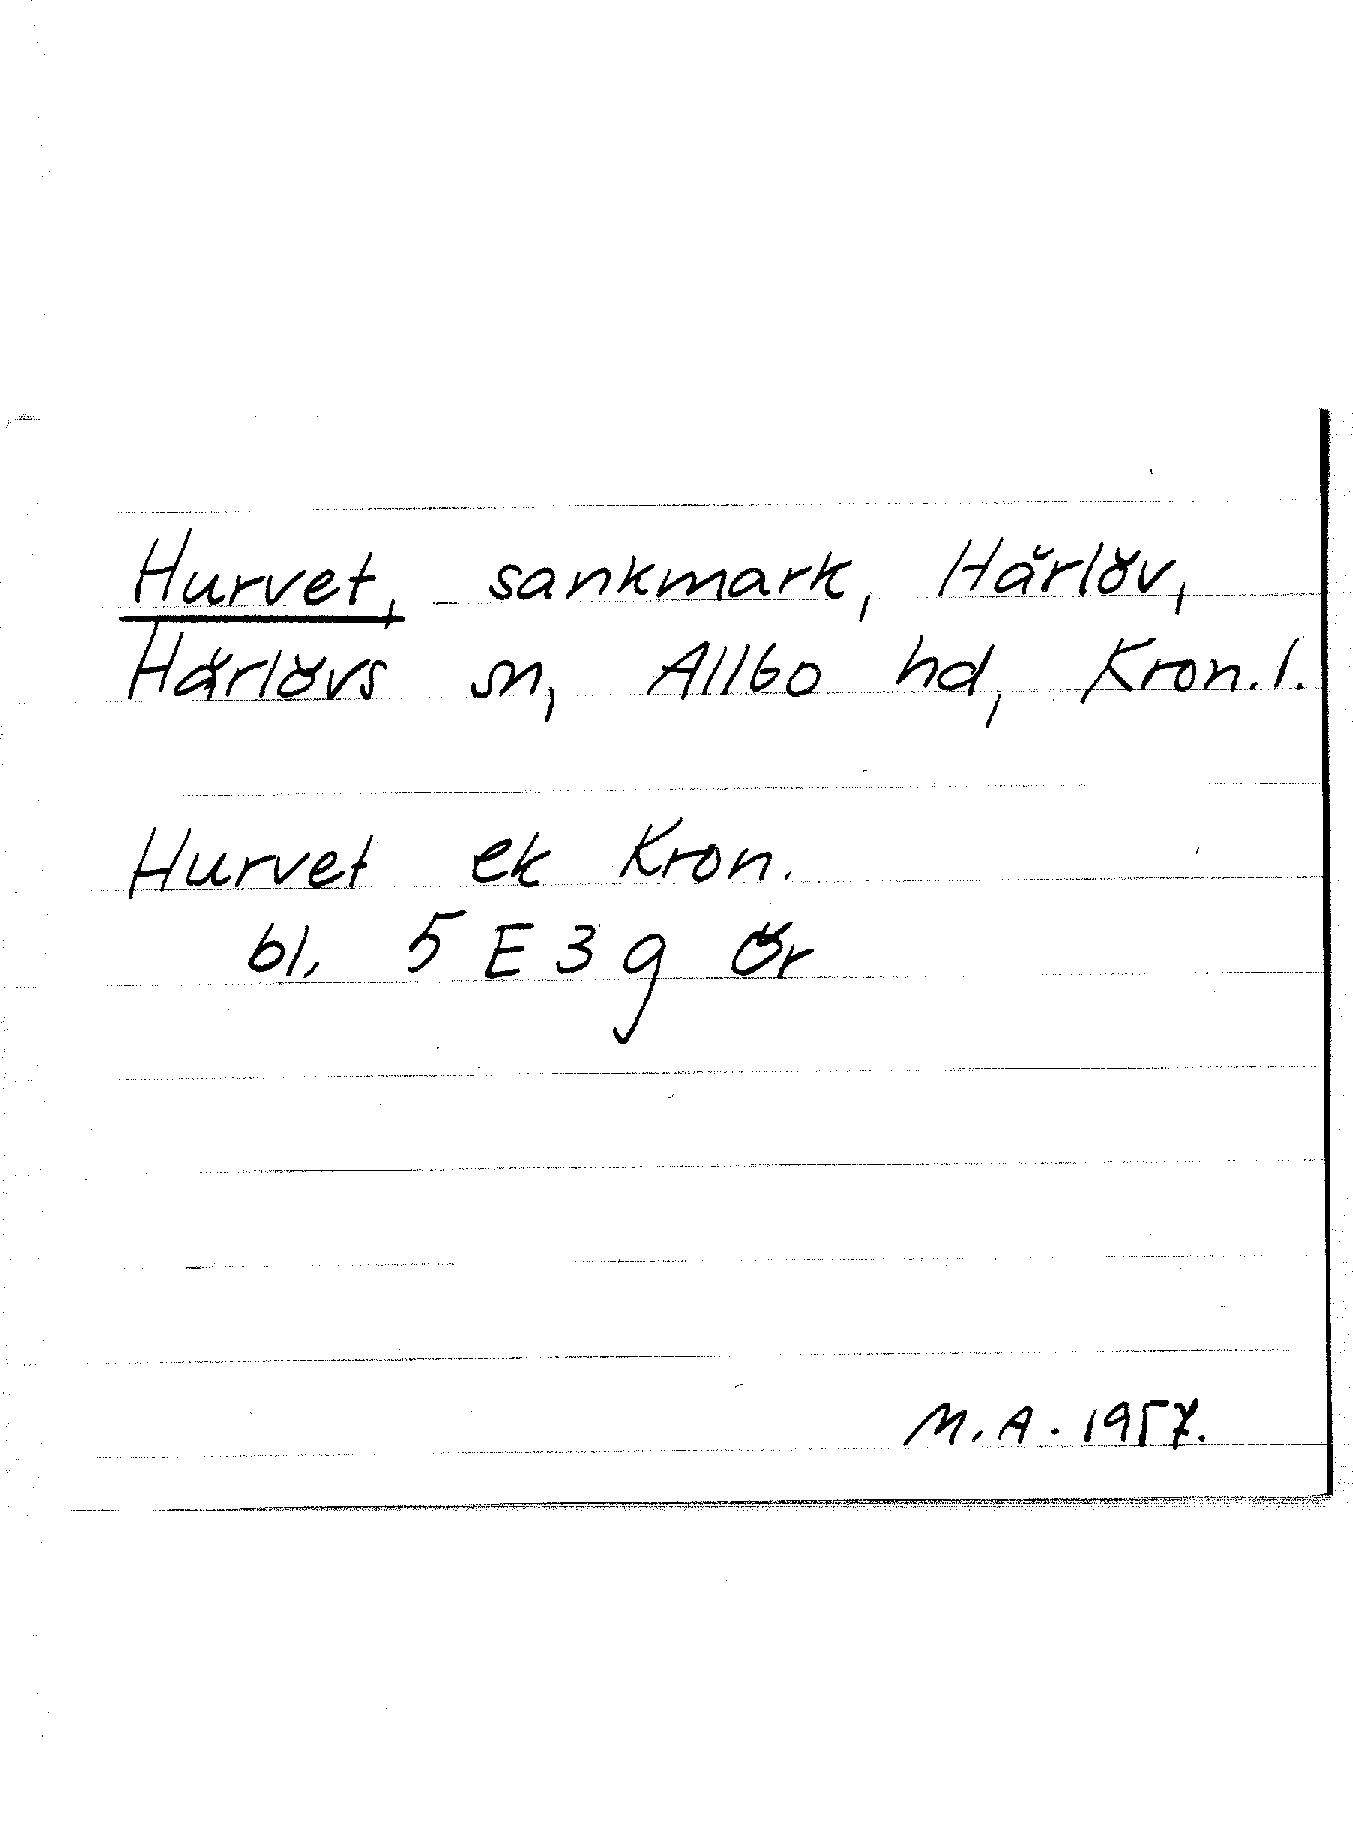 Hurvet, sankmark, Härlöv,
Härlövs sn, Allbo hd, Kron.l.
Hurvet ek Kron.
bl. 5 E 3 g Ör
M.A. 1957.